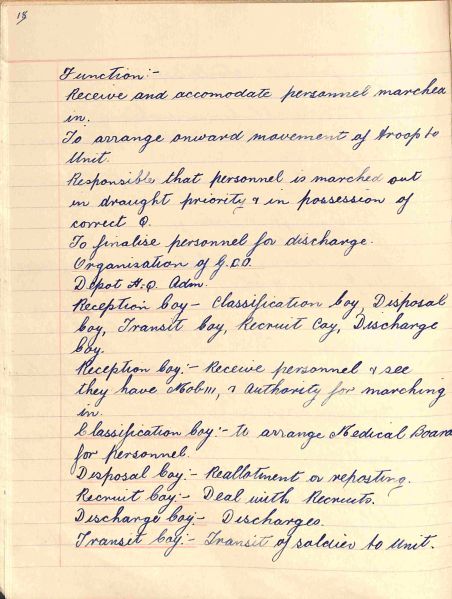 18
Function:-
Receive and accomodate personnel marched
in.
To arrange onward movement of troop to
Unit.
Responsible that personnel is marched out
in draught priority & in possession of
correct Q.
To finalise personnel for discharge.
Organization of G.D.D.
Depot H.Q. Adm.
Reception Coy - Classification Coy, Disposal
Coy, Transit Coy, Recruit Coy, Discharge
Coy.
Reception Coy:- Receive personnel & see
they have Mob III, & Authority for marching
in.
Classification Coy:- to arrange Medical Board
for personnel.
Disposal Coy:- Reallotment or reposting.
Recruit Coy:- Deal with Recruits.
Discharge Coy:- Discharges.
Transit Coy:- Transit of soldier to Unit.